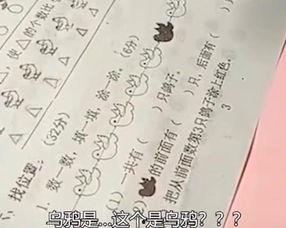 使△的个数比
找位置。(32分)
1. 数一数,填一填,涂一涂。(6分)
(1) 一共有( )只鸽子。
(2) 的前面有( )只,后面有(
把从前面数第3只鸽子涂上红色。
3
乌鸦是...这个是乌鸦???